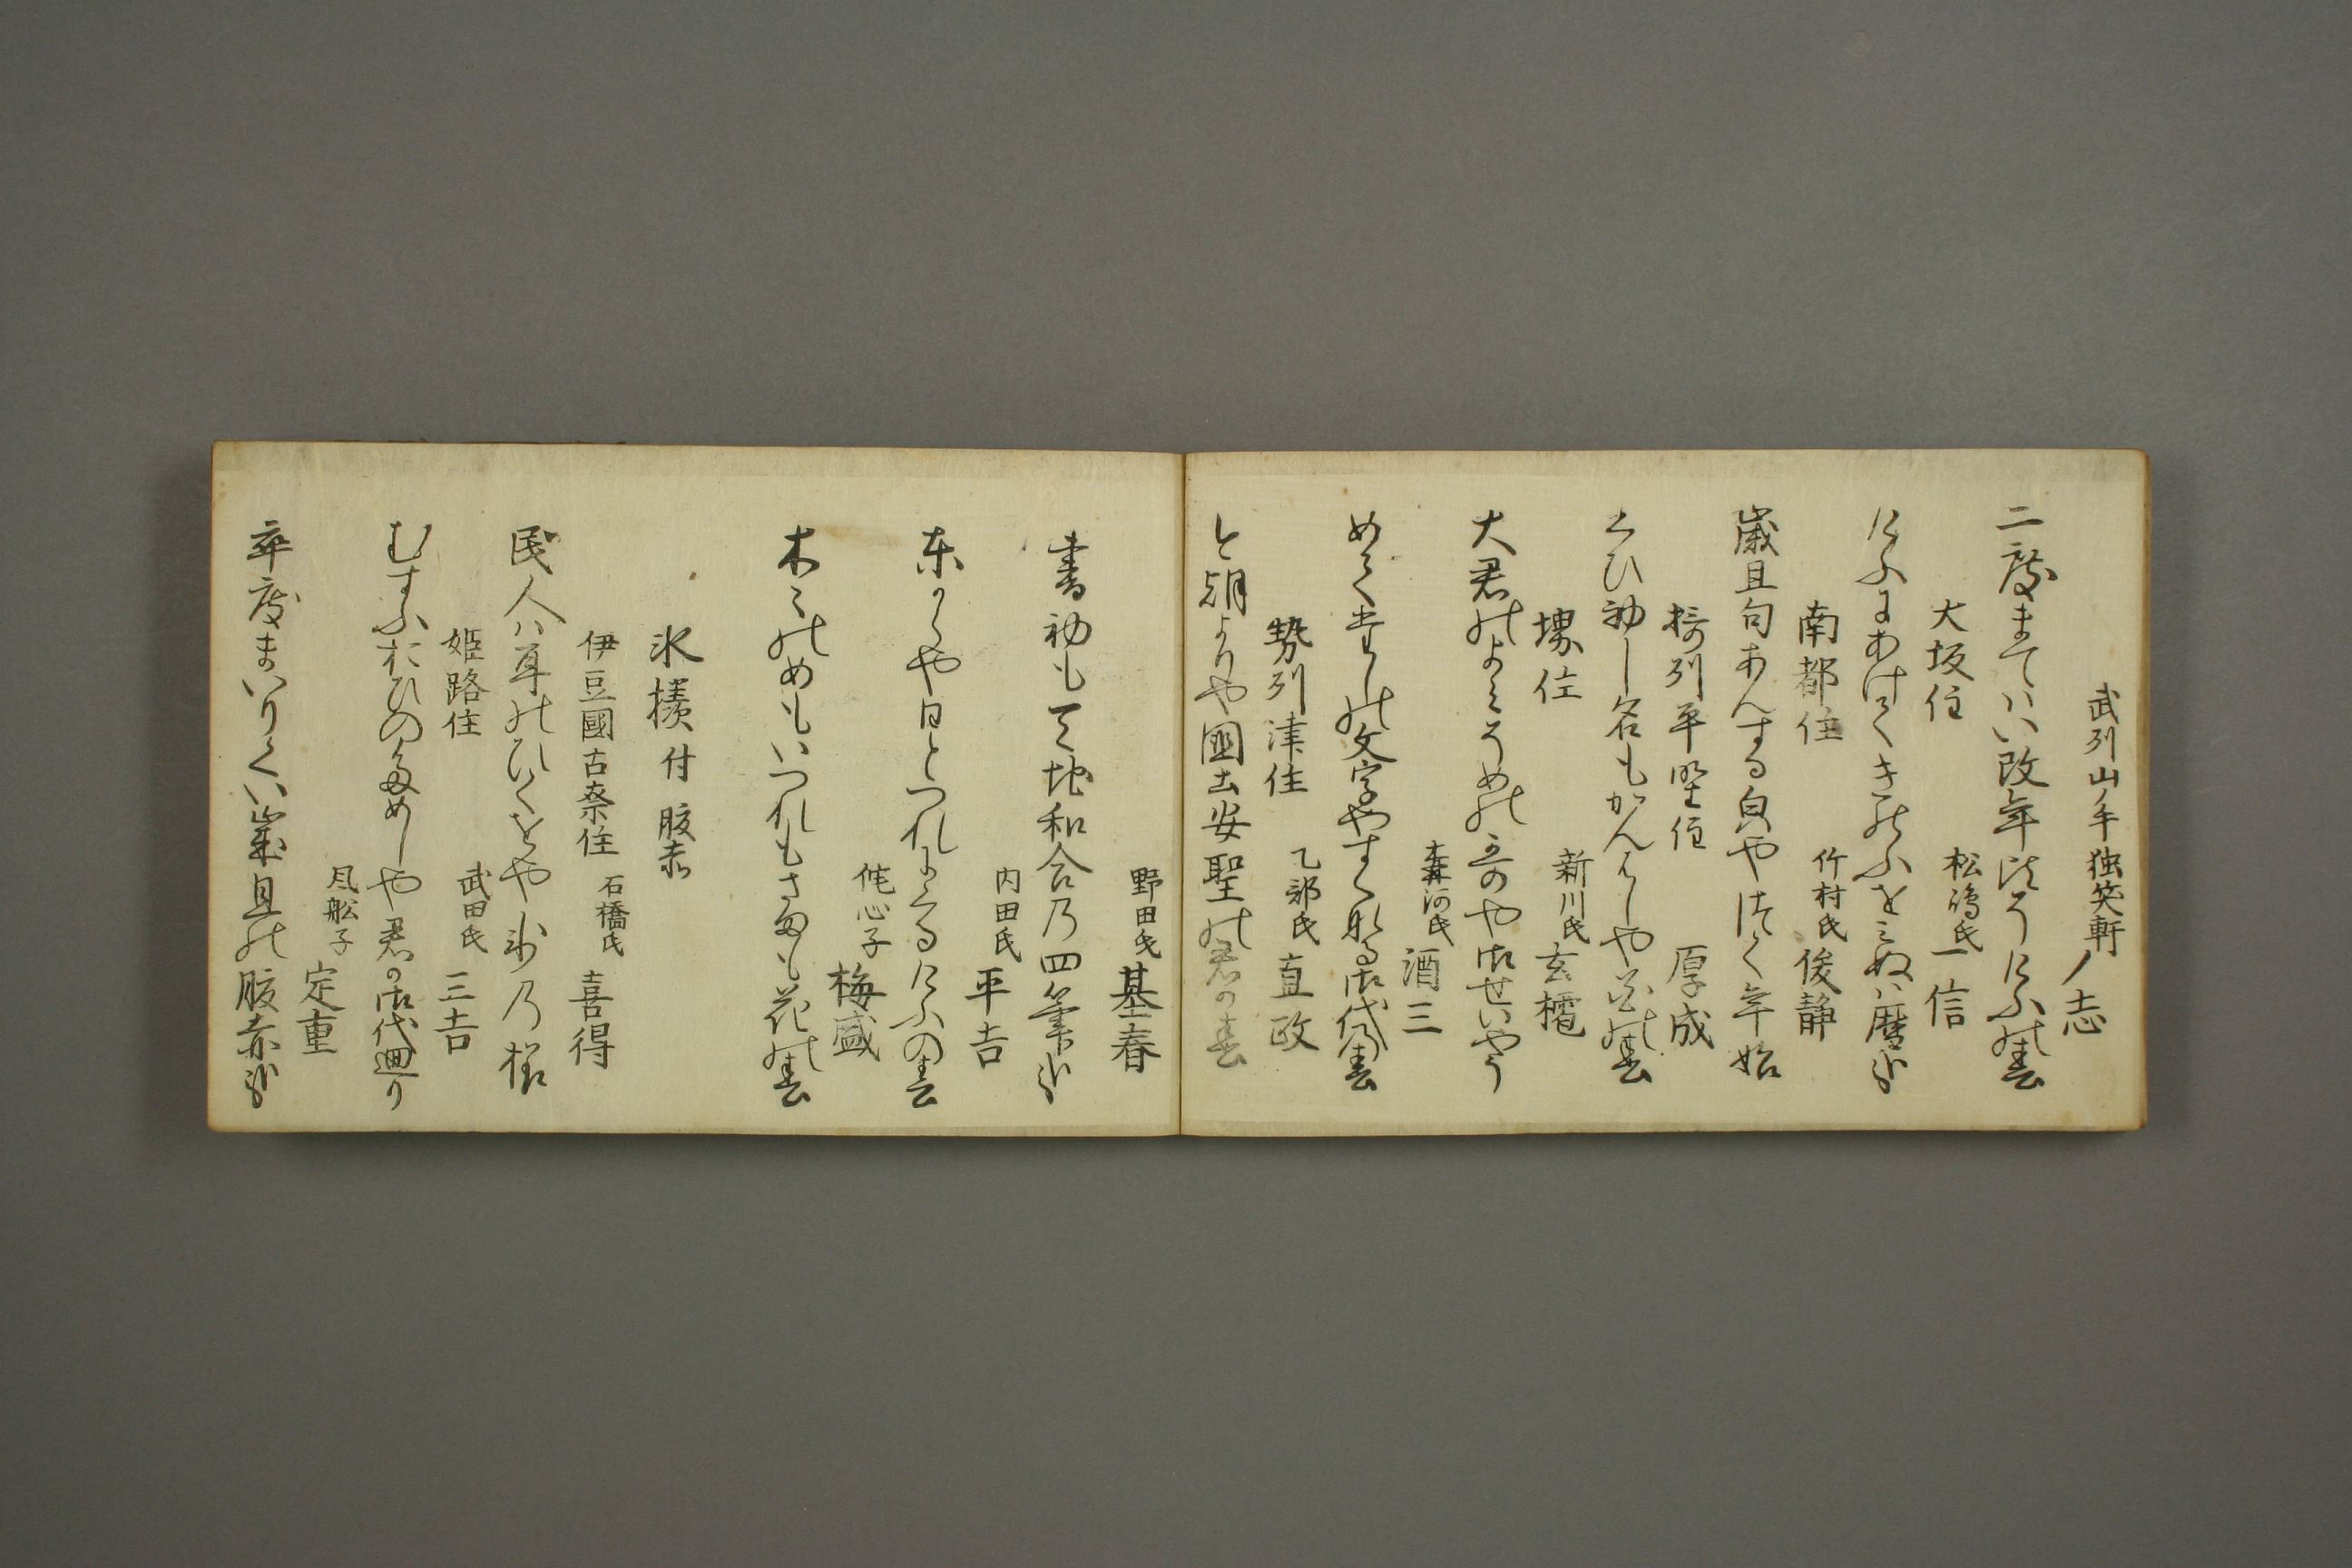 武列山ノ手 独笑軒ノ志
二度まていハ改年けうけふの春
大坂住 松嶋氏 一信
けふにあけてきのふをミぬハ暦哉
南都住 竹村氏 俊静
歳旦句あんする白やけく年始
摂列平野住 厚成
くひ初し名もかんはしや花の春
堺住 新川氏 玄櫺
大君のよミそめの哥や御せいやう
森河氏 酒三
めてたしの文字やすくなる御代の春
勢列津住 乙部氏 直政
今朝よりや国土安聖の君の春
野田氏 基春
書初も天地和合乃四筆哉
内田氏 平吉
東からや日とつれにくるけふの春
侘心子 梅盛
木々のめもいつれもさまも花の春
氷様 付 腹赤
伊豆国古奈住 石橋氏 喜得
民人ハ耳のひくをや氷乃様
姫路住 武田氏 三吉
むすふたひのためしや君の御代廻り
風船子 定重
卒度まいりてハ歳旦の腹赤哉